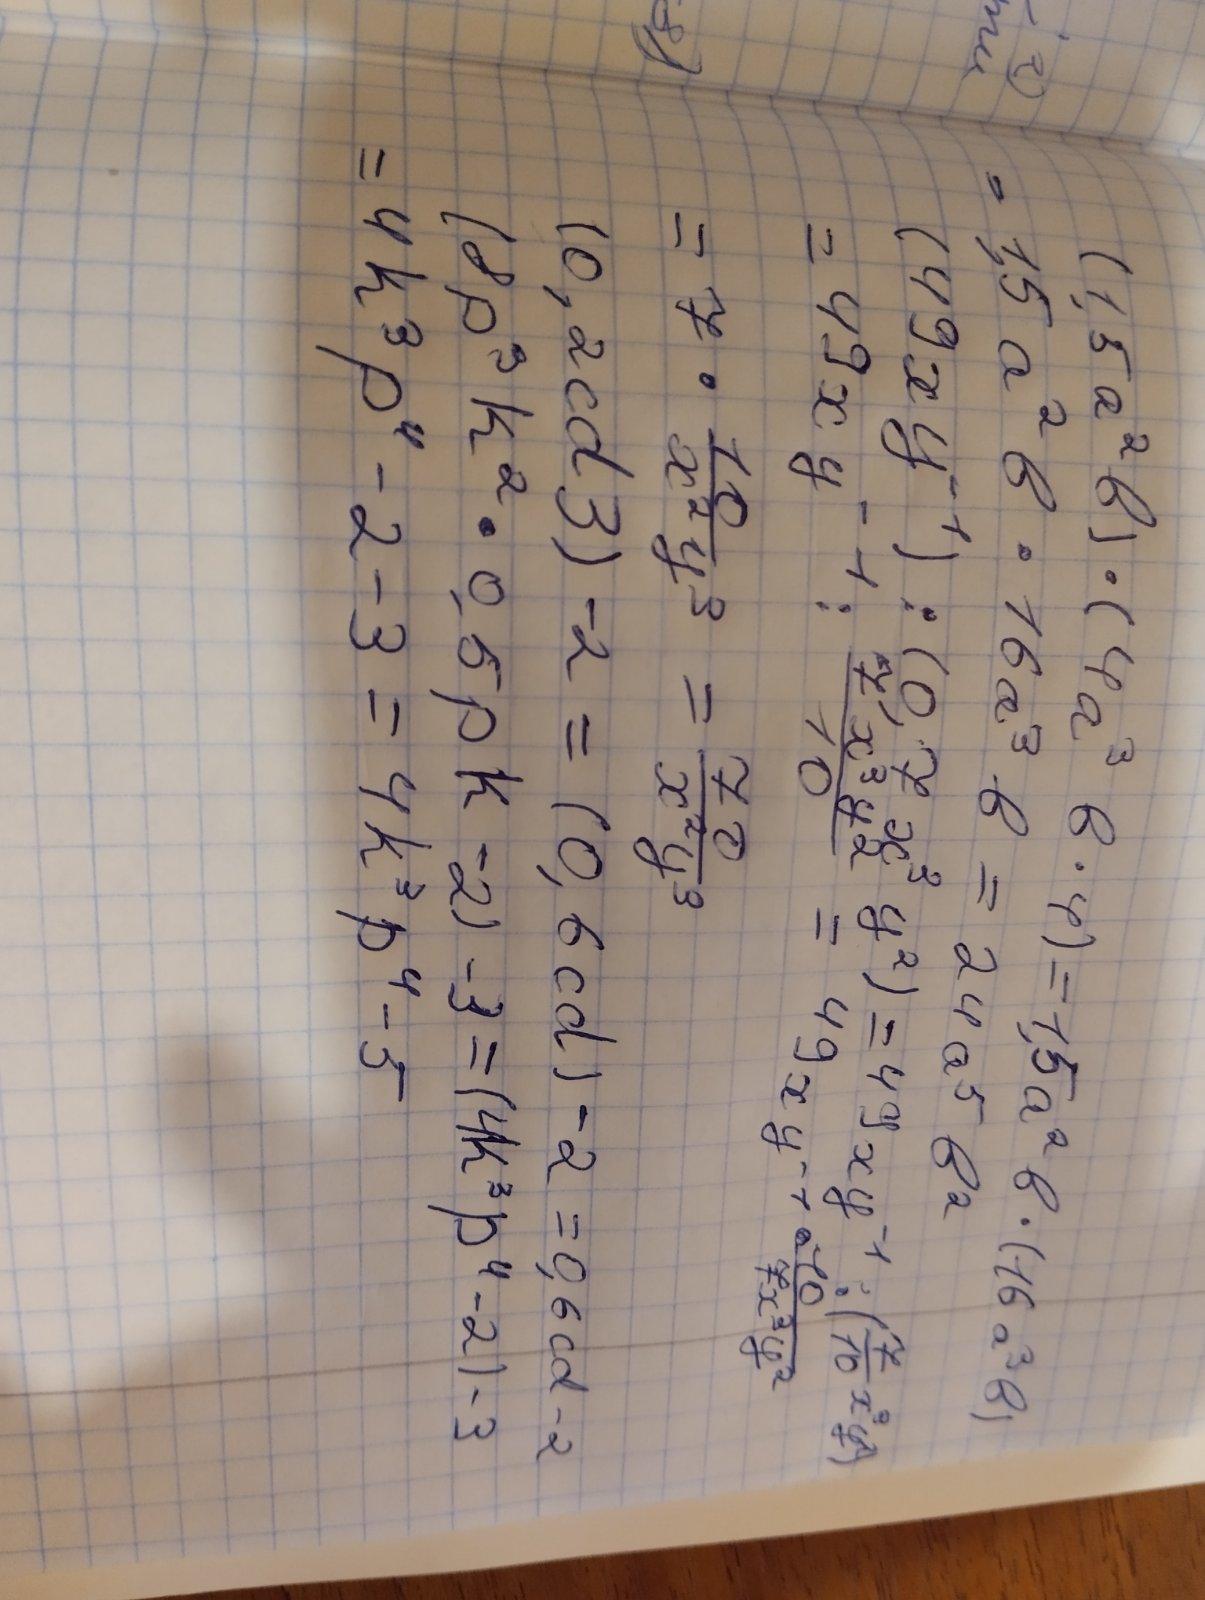 (1,5a²b)·(4a³b·4)=1,5a²b·(16a³b)
=1,5a²b·16a³b=24a⁵b²
(49xy⁻¹):(0,7x³y²)=49xy⁻¹:(7/10x³y²)
=49xy⁻¹:7x³y²/10=49xy⁻¹·10/7x³y²
=7·10/x²y³=70/x²y³
(0,2cd3)-2=(0,6cd)-2=0,6cd-2
(8p³k²·0,5pk-2)-3=(4k³p⁴-2)-3
=4k³p⁴-2-3=4k³p⁴-5